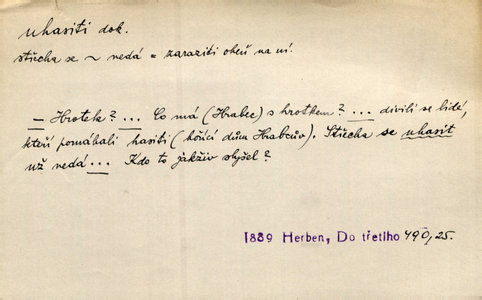 uhasiti dok.
střecha se ~ nedá = zaraziti oheň na ní.
– Hrotek? ... Co má (Hrabec) s hrotkem? ... divili se lidé,
kteří pomáhali hasiti (hořící dům Hrabcův). Střecha se uhasit
už nedá ... Kdo to jakživ slyšel?
1889 Herben, Do třetího 490, 25.